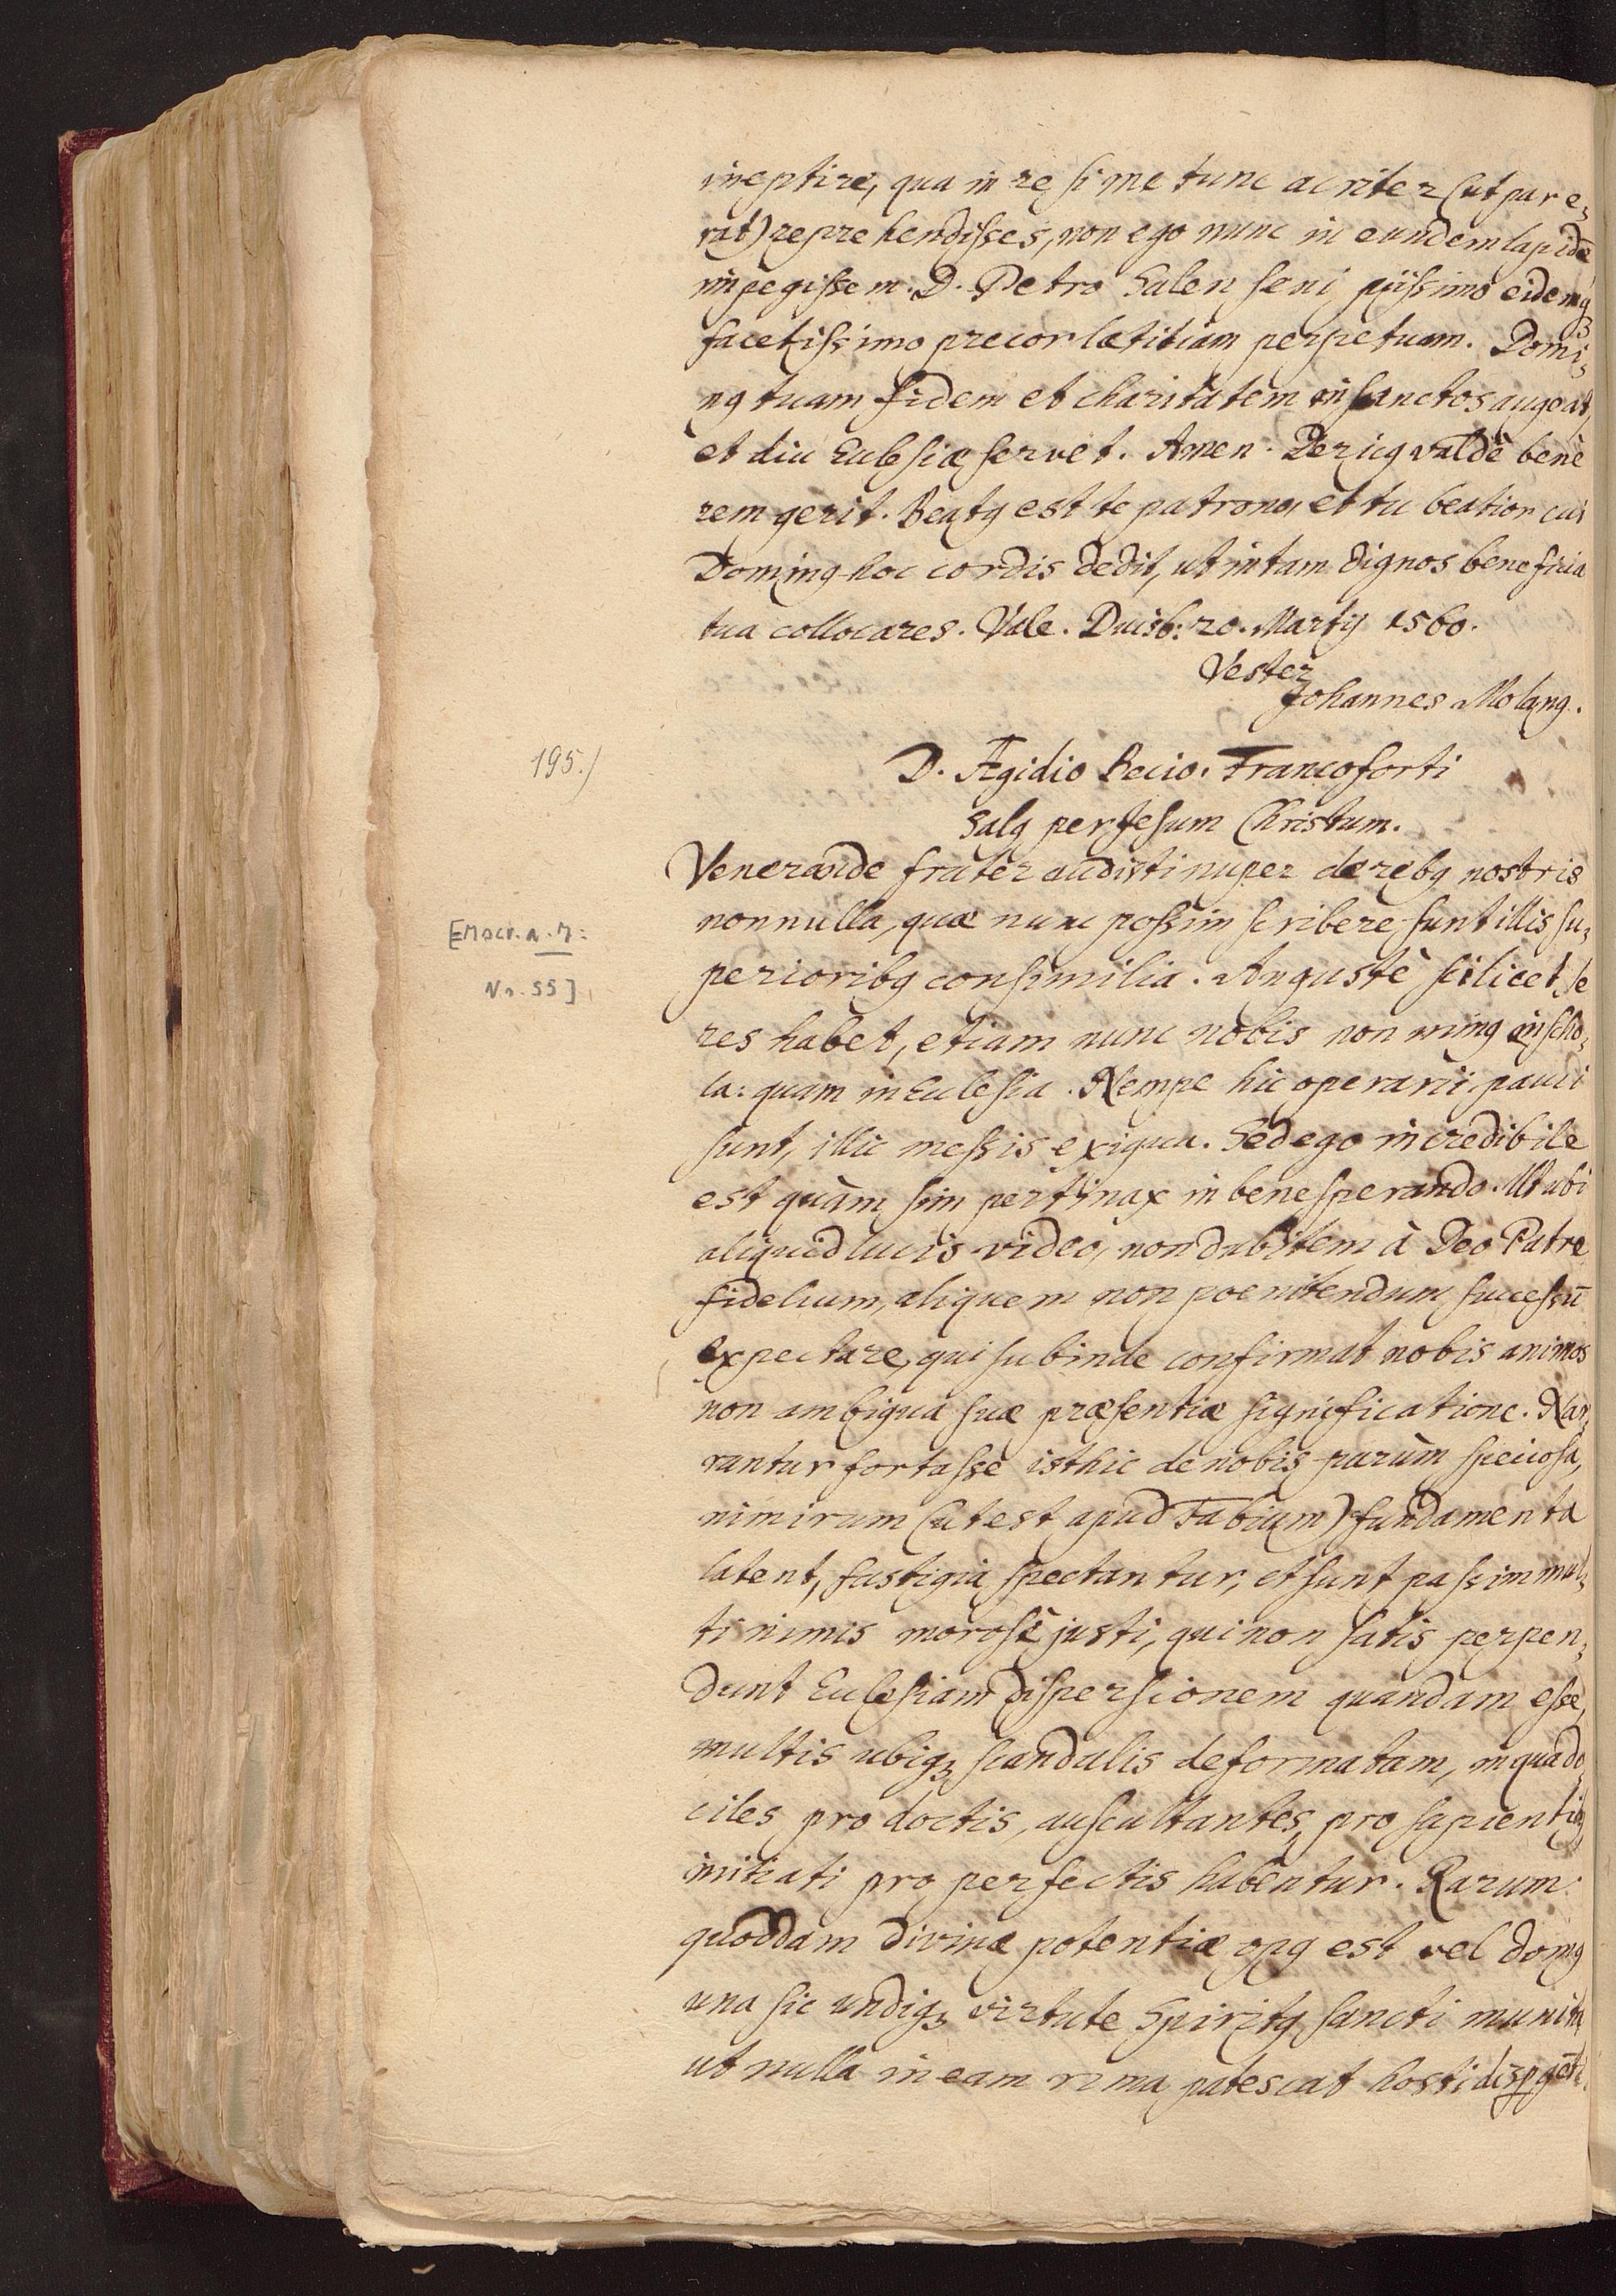 ineptire, qua in re si me tunc acriter (ut par e,
rat) reprehendisses, non ego nunc in eundem lapidē
impegissem. D. Petro Galen seni piissimo eidemq́ꝫ
facetissimo precor lætitiam perpetuam. Domi,
nꝰ tuam fidem et charitatem in sanctos augeat,
et diu Ecclesiæ servet. Amen. Dericꝰ valdè benè
rem gerit. Beatꝰ est te patrono, et tu beatior cui
Dominꝰ hoc cordis dedit, ut in tam dignos beneficia
tua collocares. Vale. Duisb: 20. Martij 1560.
Vester
Johannes Molanꝰ.
195.)
D. Ægidio Becio. Francoforti
Salꝰ per Jesum Christum.
Venerande frater audisti nuper de rebꝰ nostris
nonnulla, quæ nunc possim scribere sunt illis su,
[Mocr. a. M:
perioribꝰ consimilia. Angustè scilicet se
Nr. 55]
res habet, etiam nunc nobis non minꝰ in scho,
la: quam in Ecclesia. Nempe hic operarii pauci
sunt, illic messis exigua. Sed ego incredibile
est quàm sim pertinax in bene sperando. Ut ubi
aliquid lucis video, non dubitem à Deo Patre
fidelium, aliquem non poenitendum successū
expectare, qui subinde confirmat nobis animos
non ambigua suæ præsentiæ significatione. Nar,
rantur fortasse isthic de nobis parùm speciosa,
nimirum (ut est apud Fabium) fundamenta
latent, fastigia spectantur, et sunt passim mul,
ti nimis morosè justi, qui non satis perpen,
dunt Ecclesiam dispersionem quandam esse,
multis ubiqꝫ scandalis deformatam, in qua do,
ciles pro doctis, auscultantes, pro sapientibꝰ
initiati pro perfectis habentur. Rarum
quoddam divinæ potentiæ opꝰ est vel domꝰ
una sic undiqꝫ virtute Spiritꝰ sancti munita
ut nulla in eam rima patescat hosti